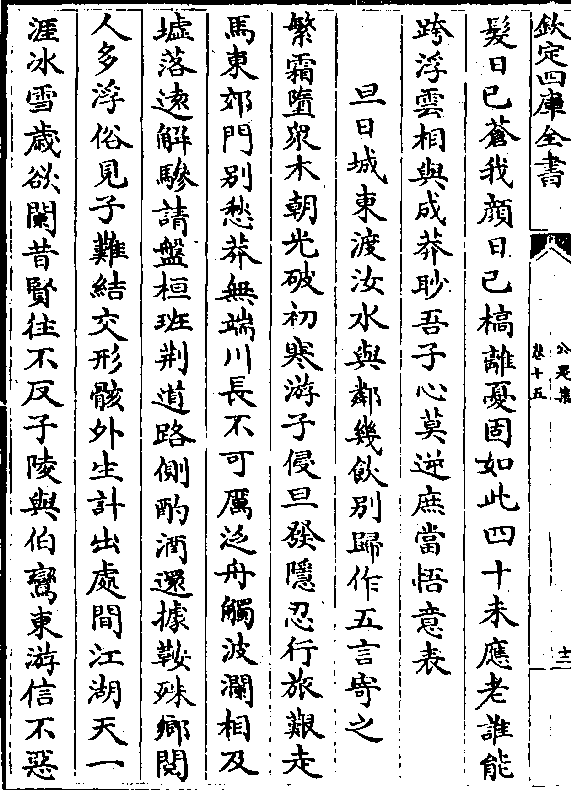 欽定四庫全書
公是集
卷十五
十二
髮日已蒼我顔日已槁離憂固如此四十未應老誰能
跨浮雲相與成莽眇吾子心莫逆庶當悟意表
旦日城東渡汝水與鄰幾飲别歸作五言寄之
繁霜墮衆木朝光破初寒游子侵旦發隱忍行旅艱走
馬東郊門别愁莽無端川長不可厲泛舟觸波瀾相及
墟落逺解驂請盤桓班荆道路側酌酒還據鞍殊鄉閱
人多浮俗見子難結交形骸外生計出處間江湖天一
涯冰雪歲欲闌昔賢往不反子陵與伯鸞東游信不惡